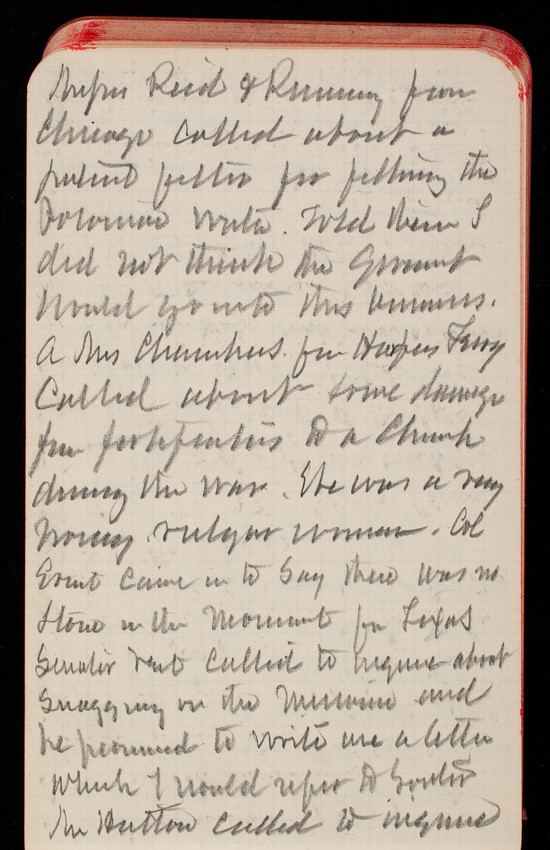 Messrs Reid & Rumsey from
Chicago called about a
patent filter for filtering the
Potomac water. Told them I
did not think the Govment
would go into this business.
A Mrs Chambers from Harpers Ferry
called about some damage
from fortifications to a Church
during the war. She was a very
noisy vulgar woman. Col
came in to say there was no
Stone in the Monument for Texas
Senator Vest called to inquire about
Snagging on the Missouri and
he promised to write me a letter
which I would refer to
Mr Hutton called to inquire